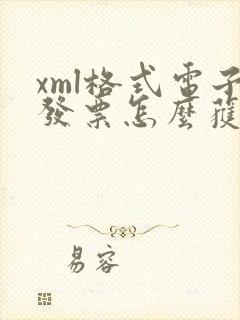 xml格式電子
發票怎麼獲
易容